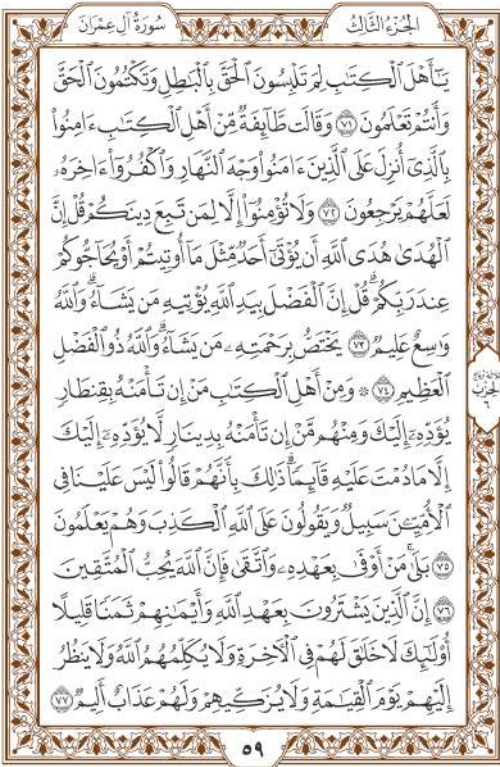 الجُزْءُ الثَّالِثُ
سُورَةُ آلِ عِمْرَانَ
يَٰٓأَهۡلَ ٱلۡكِتَٰبِ لِمَ تَلۡبِسُونَ ٱلۡحَقَّ بِٱلۡبَٰطِلِ وَتَكۡتُمُونَ ٱلۡحَقَّ
وَأَنتُمۡ تَعۡلَمُونَ ٧١ وَقَالَت طَّآئِفَةٞ مِّنۡ أَهۡلِ ٱلۡكِتَٰبِ ءَامِنُواْ
بِٱلَّذِيٓ أُنزِلَ عَلَى ٱلَّذِينَ ءَامَنُواْ وَجۡهَ ٱلنَّهَارِ وَٱكۡفُرُوٓاْ ءَاخِرَهُۥ
لَعَلَّهُمۡ يَرۡجِعُونَ ٧٢ وَلَا تُؤۡمِنُوٓاْ إِلَّا لِمَن تَبِعَ دِينَكُمۡ قُلۡ إِنَّ
ٱلۡهُدَىٰ هُدَى ٱللَّهِ أَن يُؤۡتَىٰٓ أَحَدٞ مِّثۡلَ مَآ أُوتِيتُمۡ أَوۡ يُحَآجُّوكُمۡ
عِندَ رَبِّكُمۡۗ قُلۡ إِنَّ ٱلۡفَضۡلَ بِيَدِ ٱللَّهِ يُؤۡتِيهِ مَن يَشَآءُۗ وَٱللَّهُ
وَٰسِعٌ عَلِيمٞ ٧٣ يَخۡتَصُّ بِرَحۡمَتِهِۦ مَن يَشَآءُۗ وَٱللَّهُ ذُو ٱلۡفَضۡلِ
ٱلۡعَظِيمِ ٧٤ ۞ وَمِنۡ أَهۡلِ ٱلۡكِتَٰبِ مَنۡ إِن تَأۡمَنۡهُ بِقِنطَارٖ
يُؤَدِّهِۦٓ إِلَيۡكَ وَمِنۡهُم مَّنۡ إِن تَأۡمَنۡهُ بِدِينَارٖ لَّا يُؤَدِّهِۦٓ إِلَيۡكَ
إِلَّا مَا دُمۡتَ عَلَيۡهِ قَآئِمٗاۗ ذَٰلِكَ بِأَنَّهُمۡ قَالُواْ لَيۡسَ عَلَيۡنَا فِي
ٱلۡأُمِّيِّـۧنَ سَبِيلٞ وَيَقُولُونَ عَلَى ٱللَّهِ ٱلۡكَذِبَ وَهُمۡ يَعۡلَمُونَ
٧٥ بَلَىٰۚ مَنۡ أَوۡفَىٰ بِعَهۡدِهِۦ وَٱتَّقَىٰ فَإِنَّ ٱللَّهَ يُحِبُّ ٱلۡمُتَّقِينَ
٧٦ إِنَّ ٱلَّذِينَ يَشۡتَرُونَ بِعَهۡدِ ٱللَّهِ وَأَيۡمَٰنِهِمۡ ثَمَنٗا قَلِيلًا
أُوْلَٰٓئِكَ لَا خَلَٰقَ لَهُمۡ فِي ٱلۡأٓخِرَةِ وَلَا يُكَلِّمُهُمُ ٱللَّهُ وَلَا يَنظُرُ
إِلَيۡهِمۡ يَوۡمَ ٱلۡقِيَٰمَةِ وَلَا يُزَكِّيهِمۡ وَلَهُمۡ عَذَابٌ أَلِيمٞ ٧٧
الحِزْب
٦
٥٩